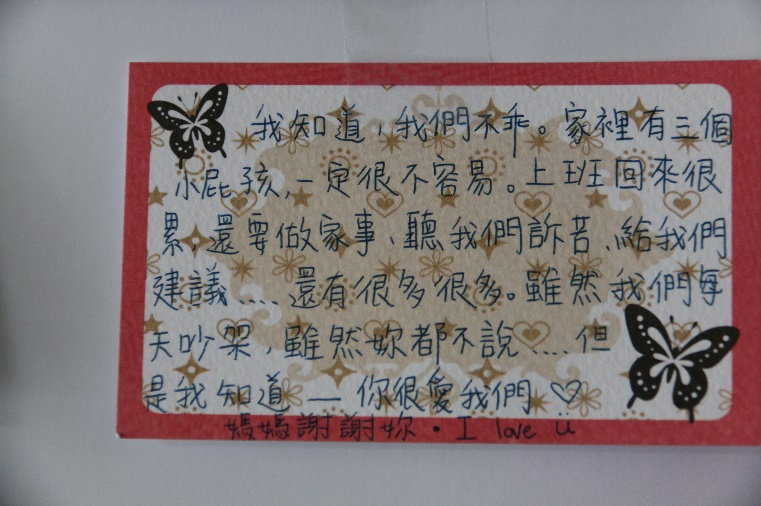 我知道，我們不乖。家裡有三個
小屁孩，一定很不容易。上班回來很
累，還要做家事、聽我們訴苦、給我們
建議……還有很多很多。雖然我們每
天吵架，雖然妳都不說……但
是我知道—你很愛我們♡
媽媽謝謝妳・I love U